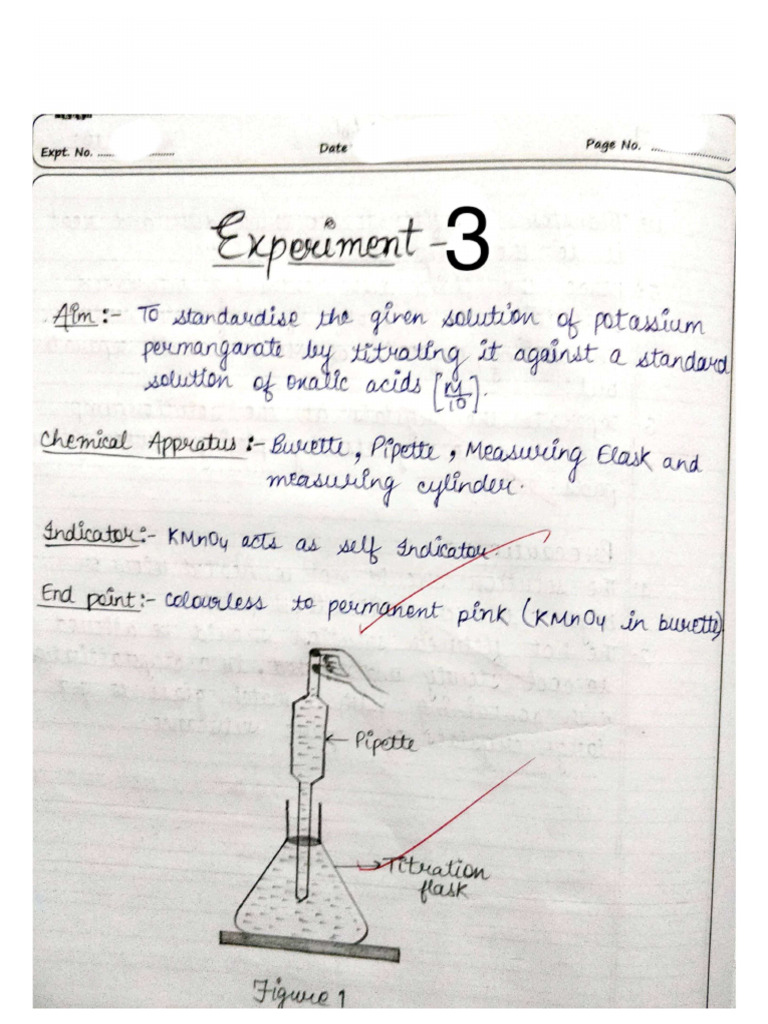 Expt. No. ..............
Date
Page No. ..............
Experiment - 3
Aim :- To standardise the given solution of potassium
permangarate by titrating it against a standard
solution of oxalic acids [M/10].
Chemical Appratus :- Burette, Pipette, Measuring Flask and
measuring cylinder.
Indicator :- KMnO4 acts as self Indicator
End point :- colourless to permanent pink (KMnO4 in burette)
Pipette
Titration
flask
Figure 1